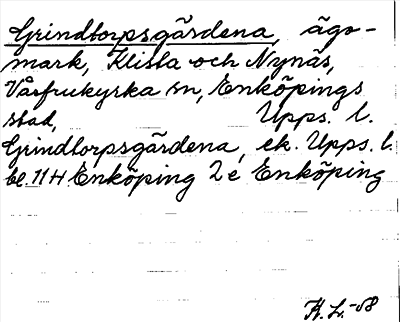 Grindtorpsgärdena, ägo-
mark, Klista och Nynäs,
Vårfrukyrka sn, Enköpings
stad, Upps. l.
Grindtorpsgärdena, ek. Upps. l.
bl. 11 H Enköping 2 e Enköping
-58